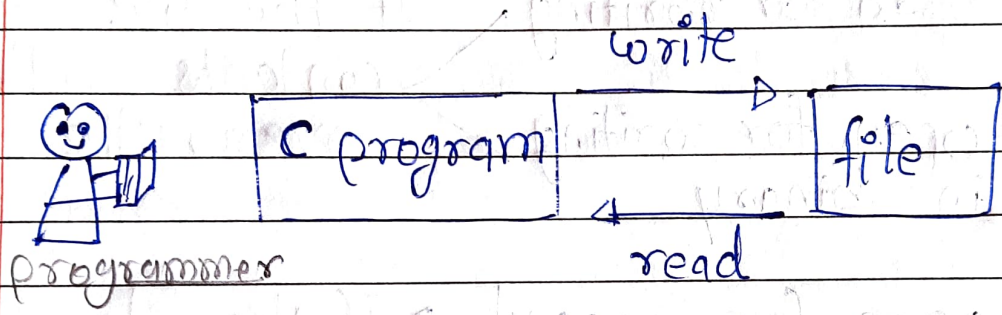 write
C program
file
read
programmer